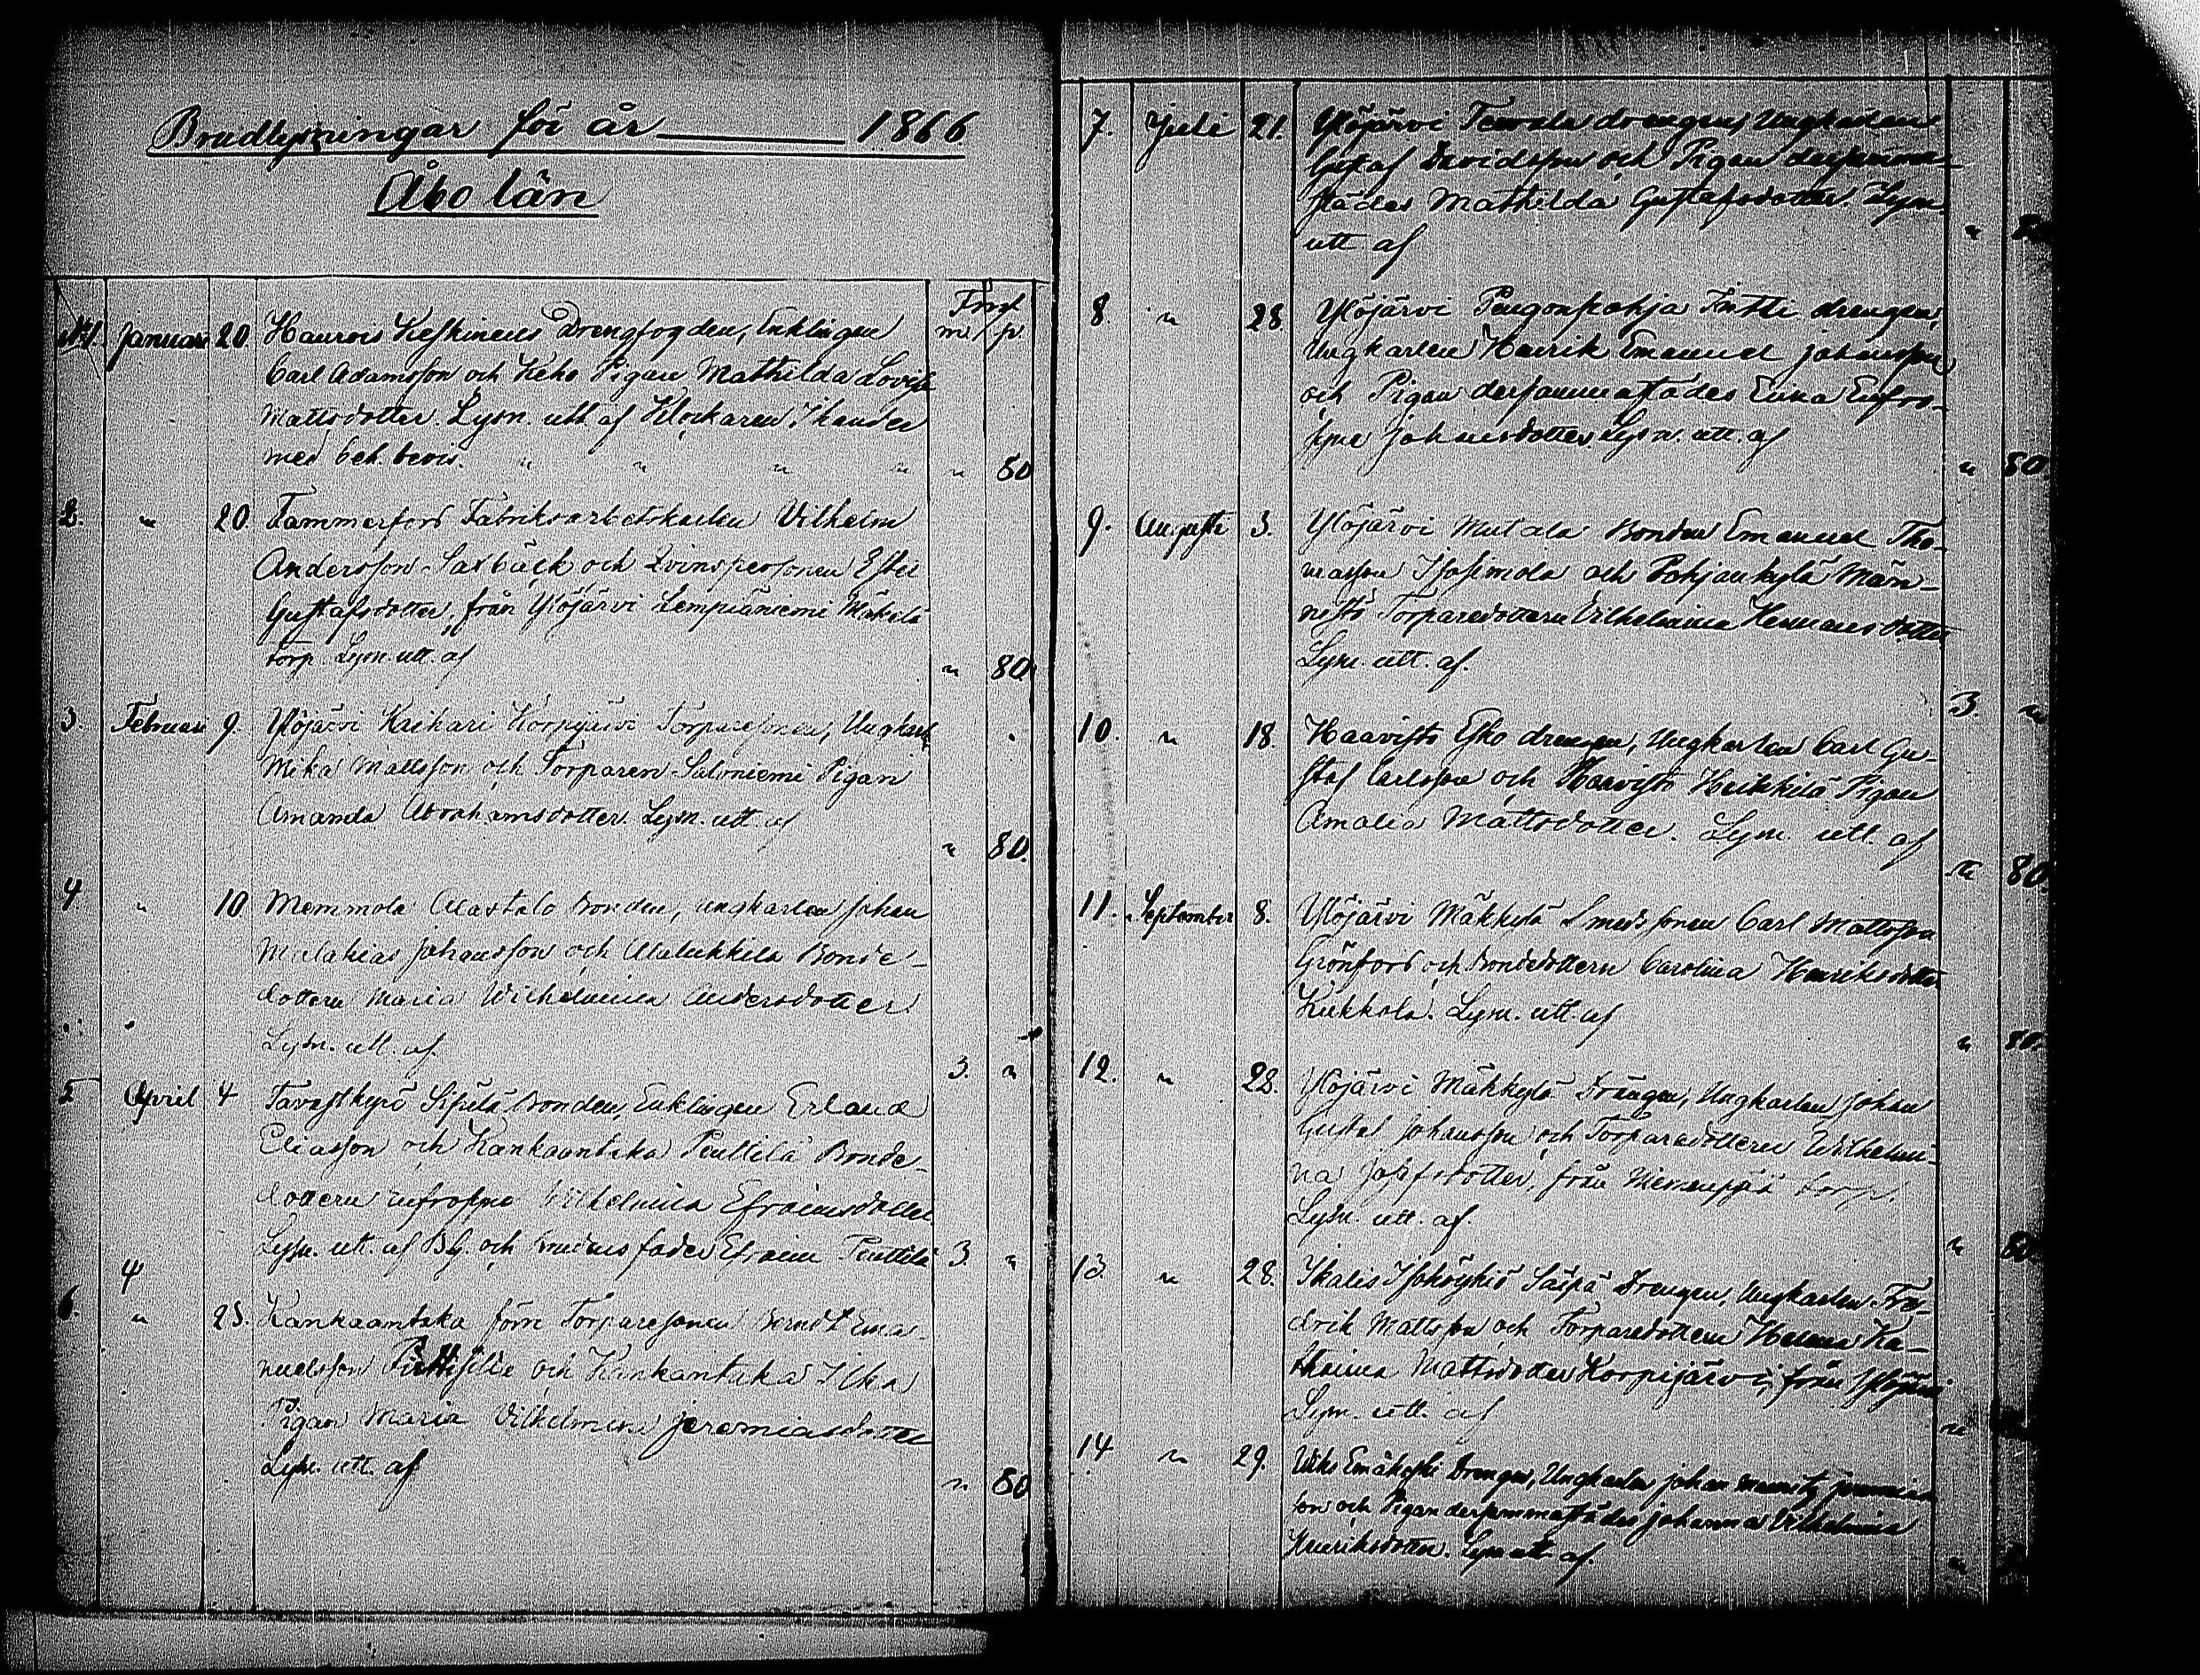 Brudlysningar för år 1866.
Åbo län
Fmrk
m/ p.
№ 1. Januari 20. Haurois Keskinens Drengfogden, Enklingen
Carl Adamsson och Keho Pigan Mathilda Lovisa
Mattsdotter. Lysn. utt. af Klockaren Ihander
med beh. bevis. " " " " " 80
2. " 20. Tammerfors Fabriksarbetskarlen Vilhelm
Andersson Saxbäck och Qvinspersonen Ester
Gustafsdotter, från Ylöjärvi Lempiäniemi Mäkelä
torp. Lysn. utt. af " 80.
3. Februari 9. Ylöjärvi Keihari Korpijärvi Torparesonen, Ungkarl.
Mika Mattsson och Torparen Saloniemi Pigan
Amanda Abrahamsdotter. Lysn. utt. af
" 80.
4. " 10. Memmola Alastalo Bonden, ungkarlen Johan
Malakias Johansson och Alalukkila Bonde-
dottern Maria Wilhelmina Andersdotter
Lysn. utt. af. 3. "
5 April 4 Tavastkyrö Sipilä Bonden, Enklingen Erland
Eliasson och Kankaantaka Penttilä Bonde-
dottern Eufrosyne Wilhelmina Efraimsdotter
Lysn. utt. af Bg. och brudens fader Efraim Penttilä 3. "
4
6. " 25. Kankaantaka förre Torparesonen Berndt Ema-
nuelsson och Kankantaka Ilka
Pigan Maria Vilhelmina Jeremiasdotter
Lysn. utt. af " 80
7. Juli 21. Ylöjärvi drengen, Ungkarlen
Gustaf Davidsson och Pigan dersamma-
städes Mathilda Gustafsdotter. Lysn.
utt af " 80
8. " 28. Ylöjärvi Pengonpohja Intti drengen,
Ungkarlen Henrik Emanuel Johansson
och Pigan dersammastädes Eufro-
syne Johansdotter. Lysn. utt. af
" 80.
9. Augusti 3. Ylöjärvi Mutala Bonden Emanuel Tho-
masson Isosimola och Pohjankylä Män-
nistö Torparedottern Vilhelmina Hermansdotter
Lysn. utt. af.
3. "
10. " 18. Haavisto Esko drengen, Ungkarlen Carl Gu-
staf Carlsson och Haavisto Heikkilä Pigan
Amalia Mattsdotter. Lysn. utt. af
" 80.
11. September 8. Ylöjärvi Mäkkylä Smedssonen Carl Mattsson
Grönfors och Bondedottern Carolina Henriksdotter
Kukkola. Lysn. utt. af
" 80.
12. " 22. Ylöjärvi Mäkkylä Drengen, Ungkarlen Johan
Gustaf Johansson och Torparedottern Wilhelmi-
na Josefsdotter, från Niemenpää torp.
Lysn. utt. af.
" 80
13. " 28. Ikalis Isoröyhiö Säipä Drengen, Ungkarlen Fre-
drik Mattsson och Torparedottern Helena Ka-
tharina Mattsdotter Korpijärvi, från Ylöjärvi
Lysn. utt. af "
14 " 29. Drengen, Ungkarlen Johan Mauritz Jeremias-
son och Pigan dersammastädes Johanna Vilhelmina
Henriksdotter. Lysn utt. af. "